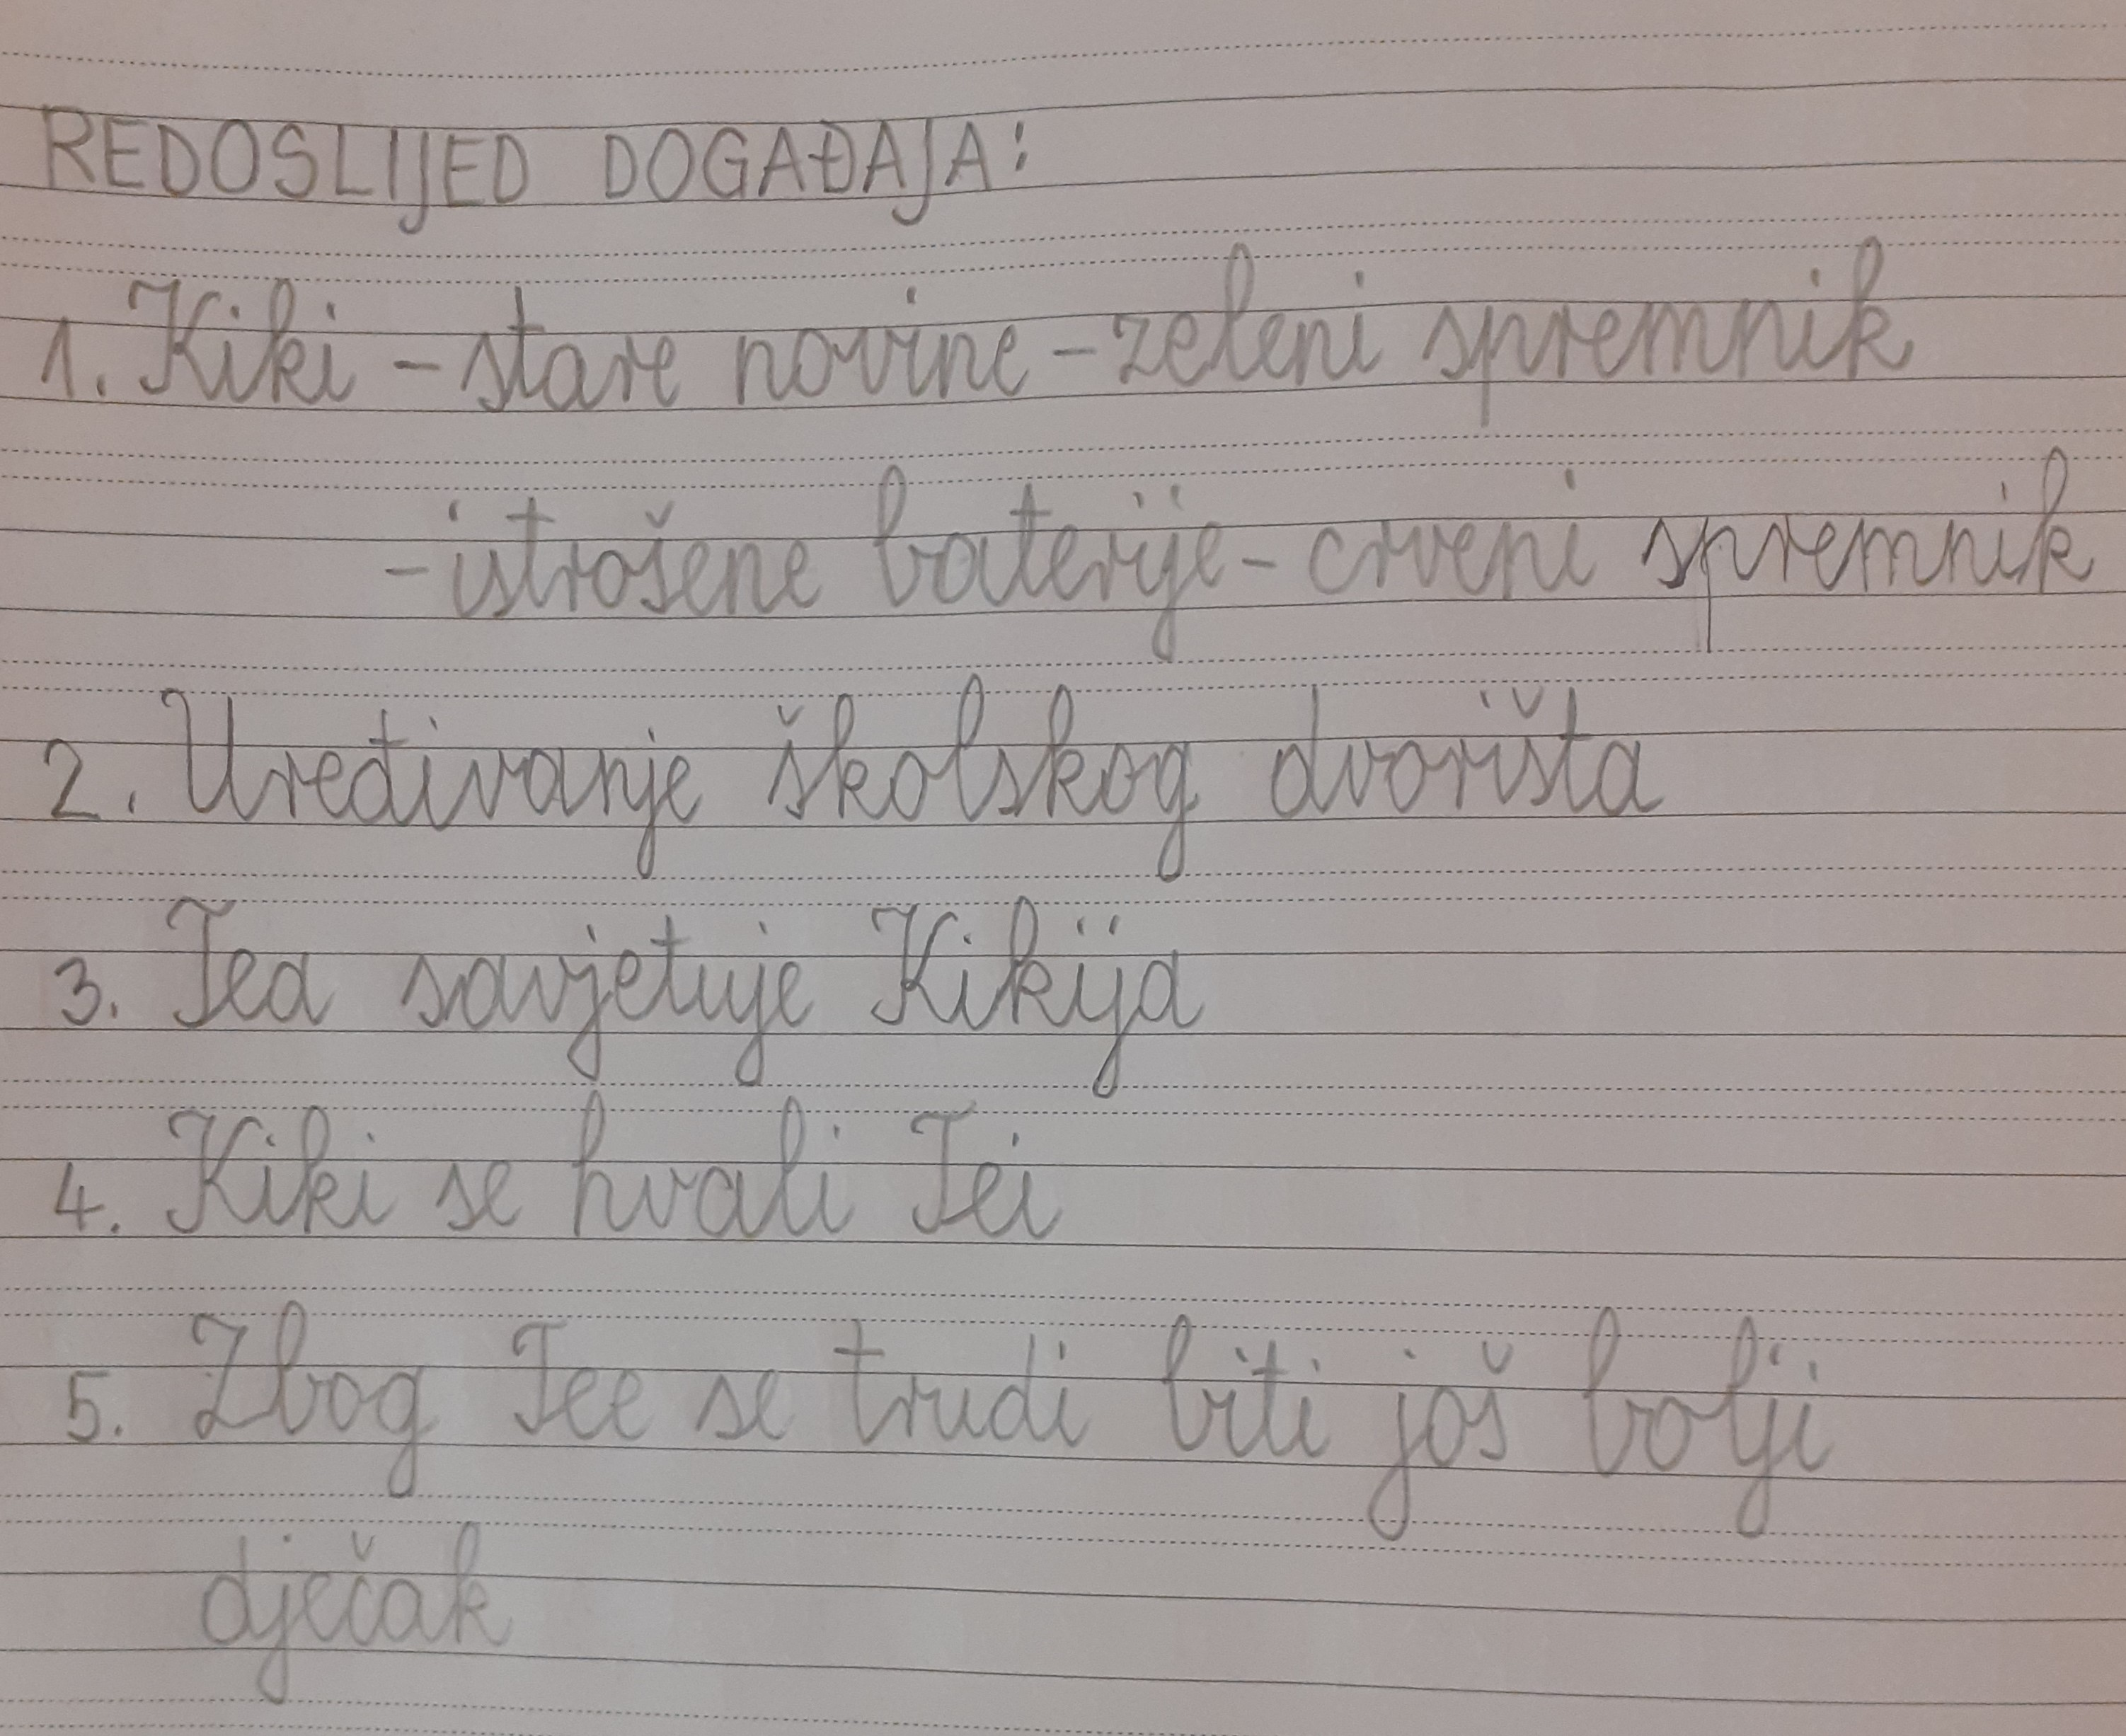 REDOSLIJED DOGAĐAJA:
1. Kiki - stare novine - zeleni spremnik
- istrošene baterije - crveni spremnik
2. Uređivanje školskog dvorišta
3. Tea savjetuje Kikija
4. Kiki se hvali Tei
5. Zbog Tee se trudi biti još bolji
dječak